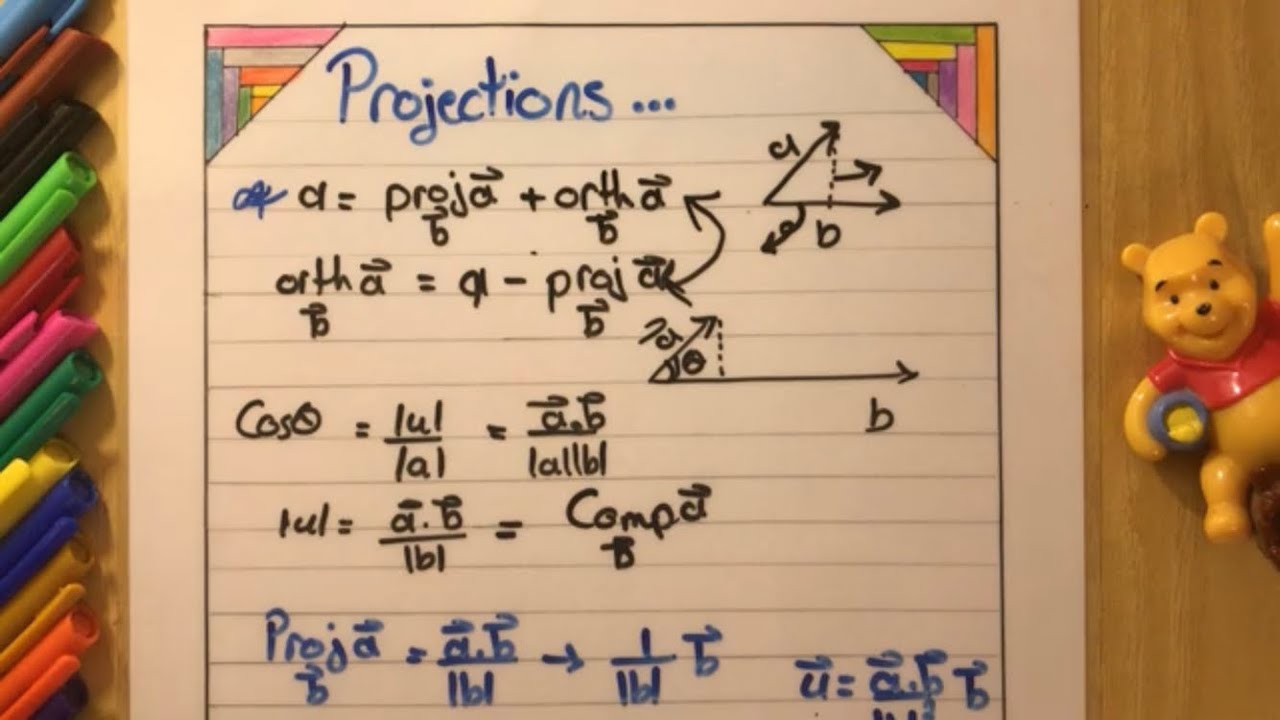 Projections...
a = proj_b⃗ a⃗ + orth_b⃗ a⃗
a
b
orth_b⃗ a⃗ = a - proj_b⃗ a⃗
a
θ
b
Cosθ = |u|/|a| = a⃗.b⃗/|a||b|
|u| = a⃗.b⃗/|b| = Comp_b⃗ a⃗
Proj_b⃗ a⃗ = a⃗.b⃗/|b| → 1/|b| b⃗
u⃗ = a⃗.b⃗/|b|² b⃗